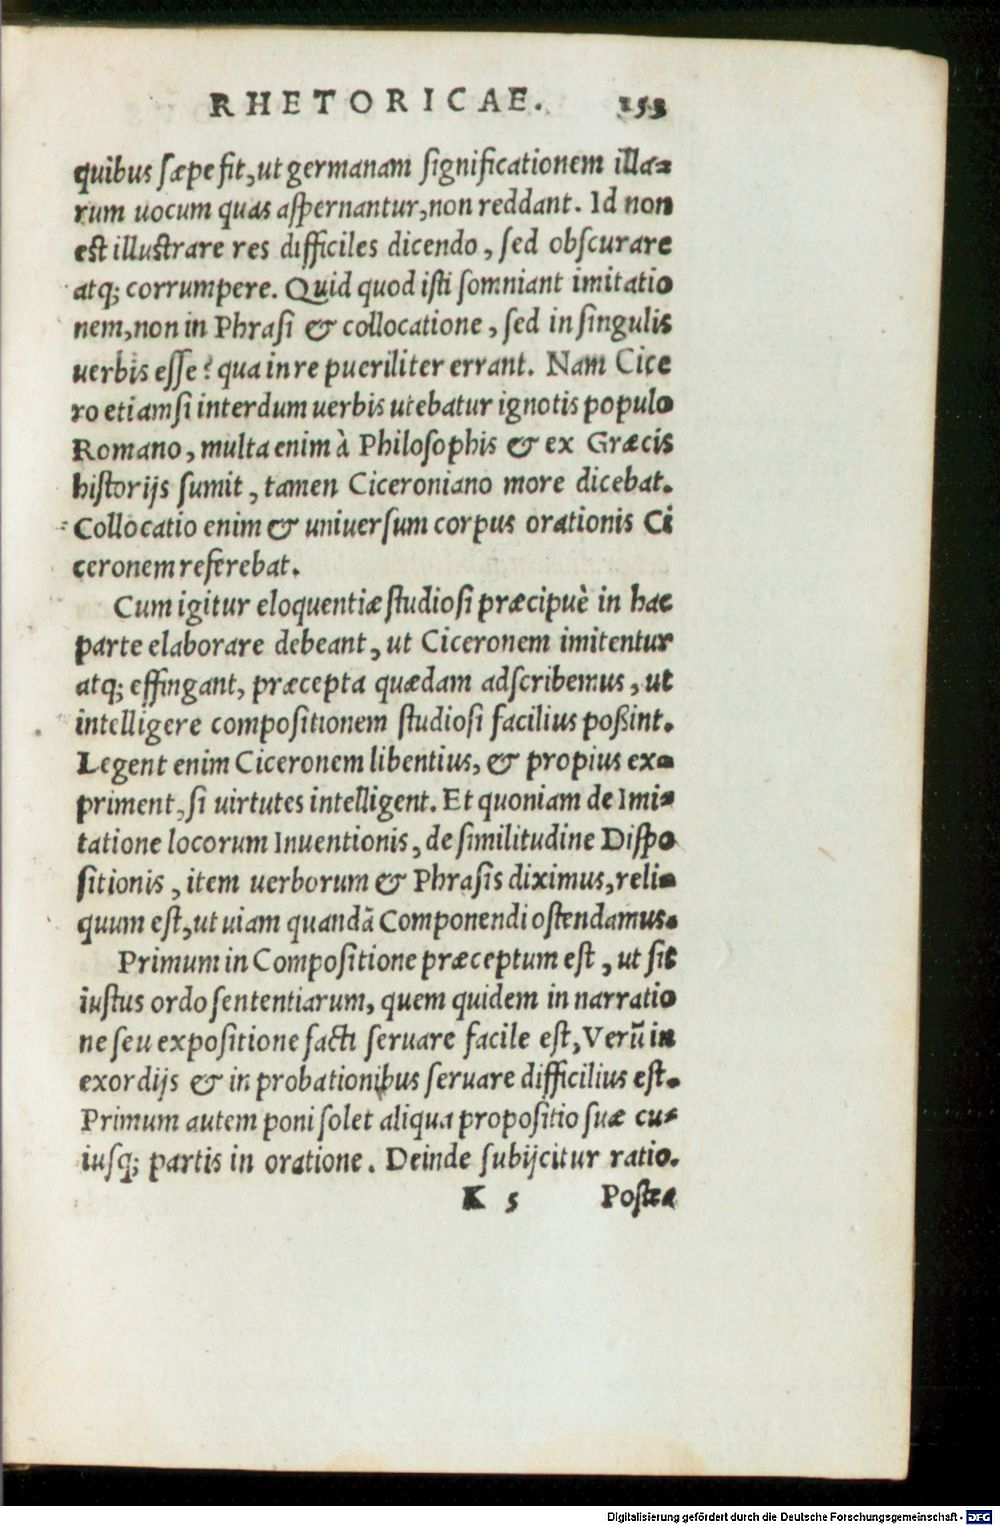 RHETORICAE. 153
quibus sæpe fit, ut germanam significationem illa-
rum uocum quas aspernantur, non reddant. Id non
est illustrare res difficiles dicendo, sed obscurare
atq; corrumpere. Quid quod isti somniant imitatio
nem, non in Phrasi & collocatione, sed in singulis
uerbis esse? qua in re pueriliter errant. Nam Cice
ro etiamsi interdum uerbis utebatur ignotis populo
Romano, multa enim à Philosophis & ex Græcis
historijs sumit, tamen Ciceroniano more dicebat.
Collocatio enim & uniuersum corpus orationis Ci
ceronem referebat.
Cum igitur eloquentiæ studiosi præcipuè in hac
parte elaborare debeant, ut Ciceronem imitentur
atq; effingant, præcepta quædam adscribemus, ut
intelligere compositionem studiosi facilius poßint.
Legent enim Ciceronem libentius, & propius ex-
priment, si uirtutes intelligent. Et quoniam de Imi-
tatione locorum Inuentionis, de similitudine Dispo
sitionis, item uerborum & Phrasis diximus, reli-
quum est, ut uiam quandã Componendi ostendamus.
Primum in Compositione præceptum est, ut sit
iustus ordo sententiarum, quem quidem in narratio
ne seu expositione facti seruare facile est, Verũ in
exordijs & in probationibus seruare difficilius est.
Primum autem poni solet aliqua propositio suæ cu-
iusq; partis in oratione. Deinde subijcitur ratio.
K 5 Postea
Digitalisierung gefördert durch die Deutsche Forschungsgemeinschaft - DFG